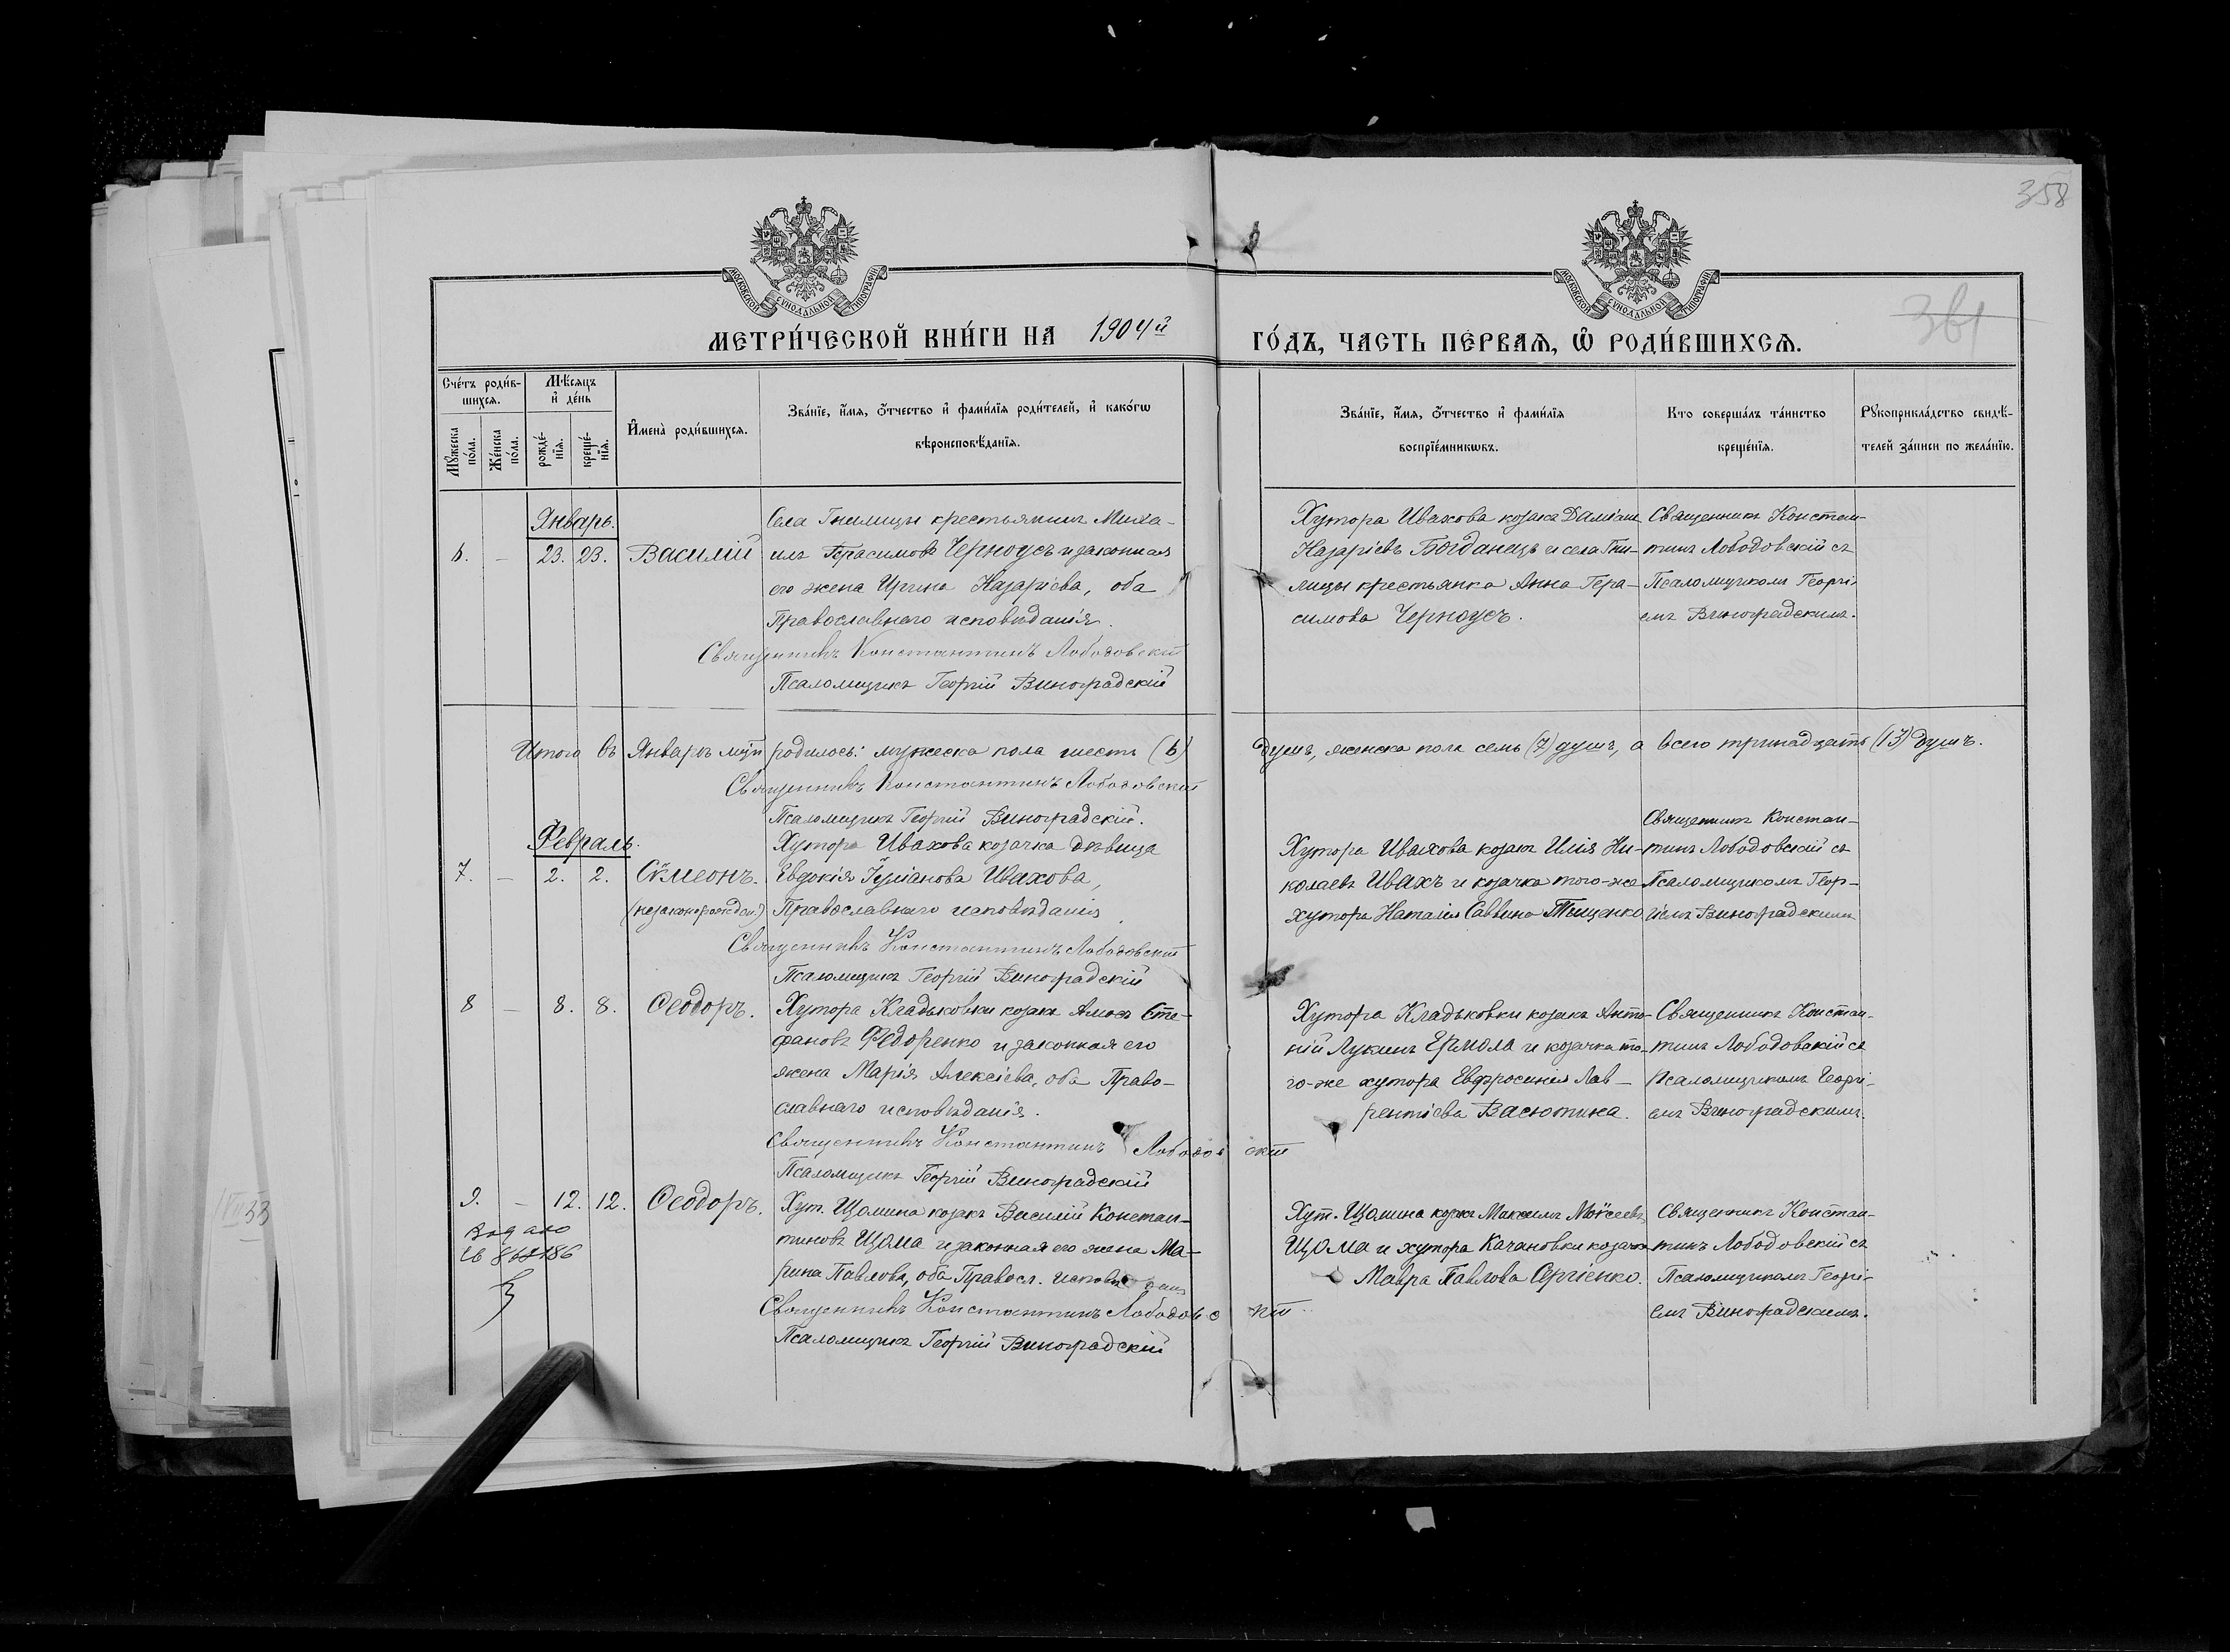 358
361
МОСКОВСКОЙ СУНОДАЛЬНОЙ ТИПОГРАФІИ
МОСКОВСКОЙ СУНОДАЛЬНОЙ ТИПОГРАФІИ
МЕТРИ́ЧЕСКОЙ КНИ́ГИ НА 1904й
ГО́ДЪ, ЧАСТЬ ПЕ́РВАѦ, Ѽ РОДИ́ВШИХСѦ.
Сче́тъ роди́в-
шихсѧ.
Мꙋ́жеска по́ла.
Же́нска по́ла.
Мѣ́сяцъ
и҆ де́нь
рожде́-
нїѧ.
креще́-
нїѧ.
И҆мена̀ роди́вшихсѧ.
Зва́нїе, и҆́мѧ, ѻ҆́тчество и҆ фами́лїѧ роди́телей, и҆ како́гѡ
вѣроисповѣ́данїѧ.
Зва́нїе, и҆́мѧ, ѻ҆́тчество и҆ фами́лїѧ
воспрїе́мникѡвъ.
Кто соверша́лъ та́инство
креще́нїѧ.
Рꙋкоприкла́дство свидѣ́-
телей за́писи по жела́нїю.
Январь.
6. — 23. 23. Василій
Села Гнилицы крестьянинъ Миха-
илъ Герасимовъ Черноусъ и законная
его жена Ирина Назаріева, оба
Православнаго исповѣданія.
Священникъ Константинъ Лободовскій
Псаломщикъ Георгій Виноградскій
Хутора Ивахова козакъ Даміанъ
Назаріевъ Богданецъ и села Гни-
лицы крестьянка Анна Гера-
симова Черноусъ.
Священникъ Констан-
тинъ Лободовскій съ
Псаломщикомъ Георгі-
емъ Виноградскимъ.
Итого въ Январѣ м-цѣ родилось: мужеска пола шесть (6) душъ, женска пола семь (7) душъ, а всего тринадцать (13) душъ.
Священникъ Константинъ Лободовскій
Псаломщикъ Георгій Виноградскій.
Февраль.
7. — 2. 2. Сѵмеонъ.
(незаконорожден.)
Хутора Ивахова козачка дѣвица
Евдокія Іуліанова Ивахова,
Православнаго исповѣданія.
Священникъ Константинъ Лободовскій
Псаломщикъ Георгій Виноградскій
Хутора Ивахова козакъ Илія Ни-
колаевъ Ивахъ и козачка того-же
хутора Наталія Саввина Тыщенко
Священникъ Констан-
тинъ Лободовскій съ
Псаломщикомъ Геор-
гіемъ Виноградскимъ
8 — 8. 8. Ѳеодоръ.
Хутора Кладьковки козакъ Амосъ Сте-
фановъ Федоренко и законная его
жена Марія Алексіева, оба Право-
славнаго исповѣданія.
Священникъ Константинъ Лободовскій
Псаломщикъ Георгій Виноградскій
Хутора Кладьковки козакъ Анто-
ній Лукинъ Ермола и козачка то-
го-же хутора Евфросинія Лав-
рентіева Васютина.
Священникъ Констан-
тинъ Лободовскій съ
Псаломщикомъ Георгі-
емъ Виноградскимъ.
9. — 12. 12. Ѳеодоръ.
Видано
Хут. Щомина козакъ Василій Констан-
тиновъ Щома и законная его жена Ма-
рина Павлова, оба Правосл. исповѣданія
Священникъ Константинъ Лободовскій
Псаломщикъ Георгій Виноградскій
Хут. Щомина козакъ Максимъ Моѵсеевъ
Щома и хутора Качановки козачка
Мавра Павлова Сергіенко.
Священникъ Констан-
тинъ Лободовскій съ
Псаломщикомъ Георгі-
емъ Виноградскимъ.